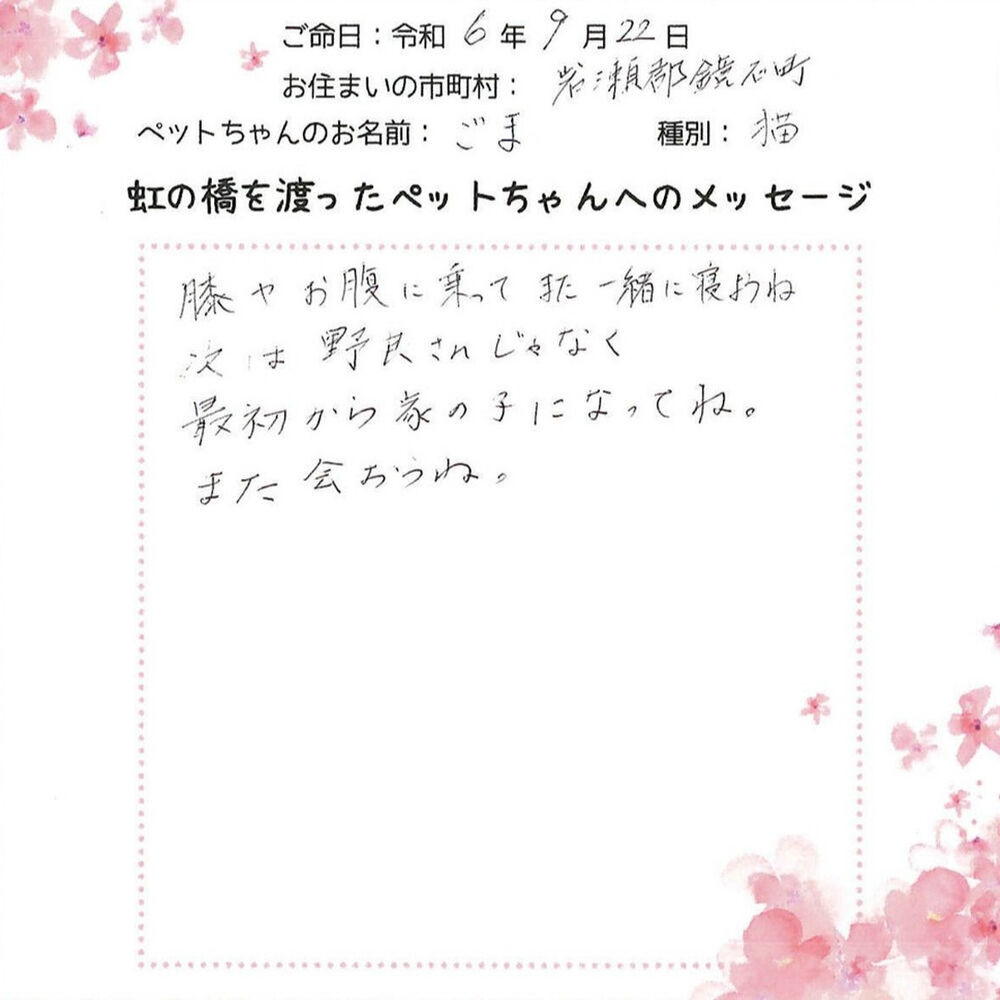 ご命日：令和 6 年 9 月 22 日
お住まいの市町村： 岩瀬郡鏡石町
ペットちゃんのお名前： ごま 種別： 猫
虹の橋を渡ったペットちゃんへのメッセージ
膝やお腹に乗ってまた一緒に寝ようね
次は野良さんじゃなく
最初から家の子になってね。
また会おうね。